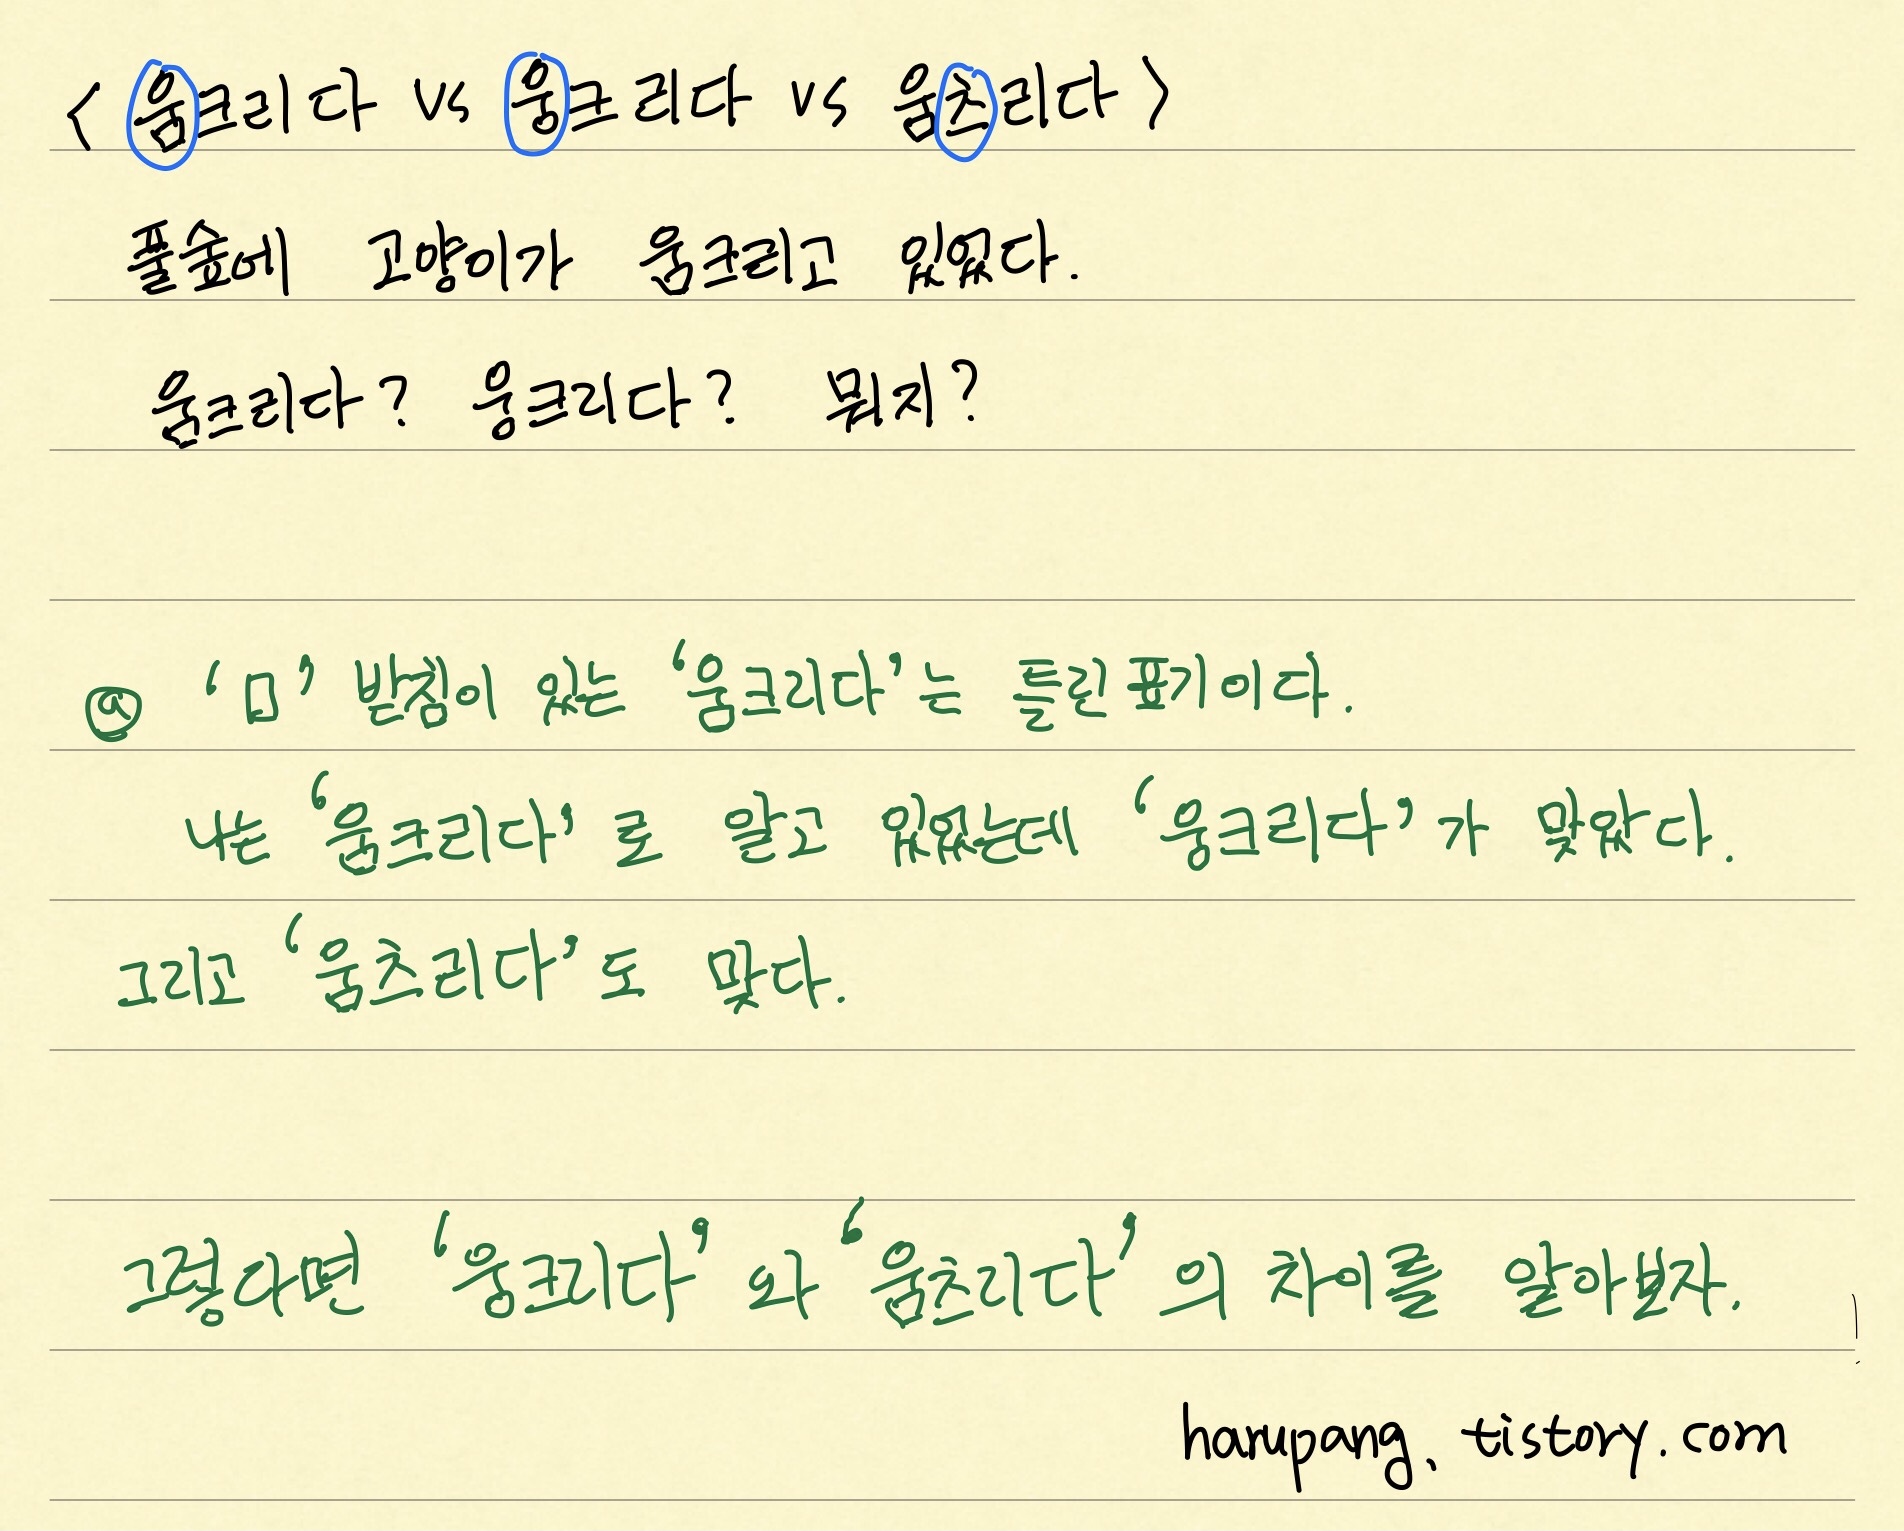 < 움크리다 vs 웅크리다 vs 움츠리다 >
풀숲에 고양이가 움크리고 있었다.
움크리다? 웅크리다? 뭐지?
ⓐ 'ㅁ' 받침이 있는 '움크리다'는 틀린 표기이다.
나는 '움크리다'로 알고 있었는데 '웅크리다'가 맞았다.
그리고 '움츠리다'도 맞다.
그렇다면 '웅크리다'와 '움츠리다'의 차이를 알아보자.
harupang.tistory.com